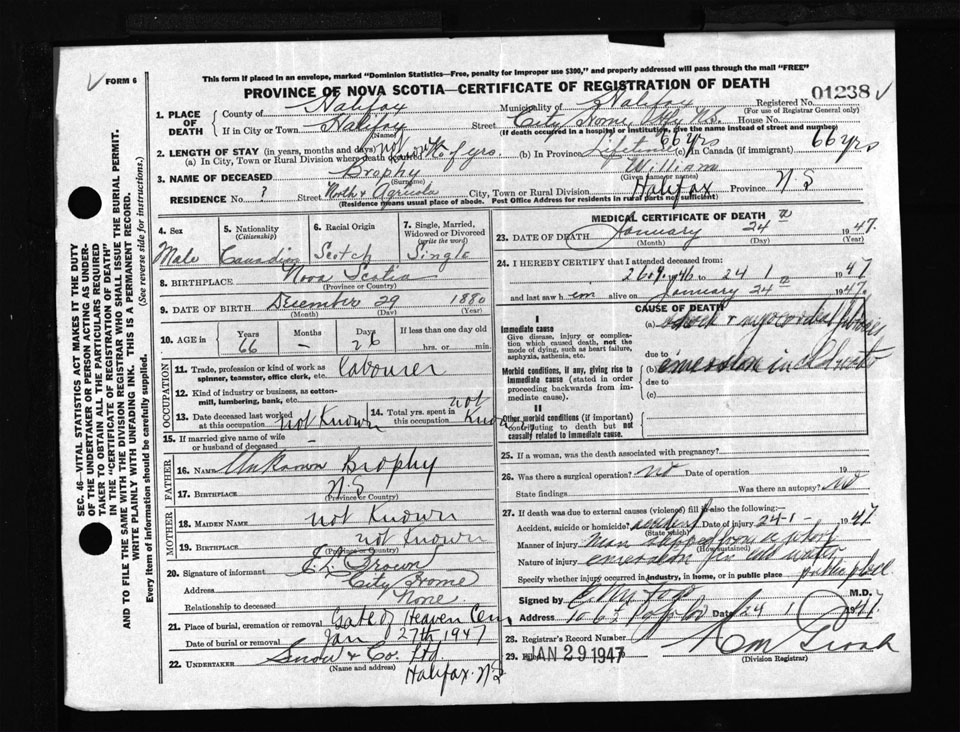 FORM 6
This form if placed in an envelope, marked "Dominion Statistics—Free, penalty for improper use $300," and properly addressed will pass through the mail "FREE"
PROVINCE OF NOVA SCOTIA—CERTIFICATE OF REGISTRATION OF DEATH
01238
1. PLACE OF DEATH
County of Halifax Municipality of Halifax Registered No.
(For use of Registrar General only)
If in City or Town Halifax Street City Home, House No.
(Name) (If death occurred in a hospital or institution, give the name instead of street and number)
2. LENGTH OF STAY (in years, months and days)
(a) In City, Town or Rural Division where death occurred not known of yrs. (b) In Province Lifetime 66 yrs (c) In Canada (if immigrant) 66 yrs
3. NAME OF DECEASED Brophy William
(Surname) (Given name or names)
RESIDENCE No. ? Street North & Agricola City, Town or Rural Division Halifax Province N S
(Residence means usual place of abode. Post Office Address for residents in rural parts not sufficient)
4. Sex
Male
5. Nationality
(Citizenship)
Canadian
6. Racial Origin
Scotch
7. Single, Married, Widowed or Divorced
(write the word)
Single
8. BIRTHPLACE Nova Scotia
(Province or Country)
9. DATE OF BIRTH December 29 1880
(Month) (Day) (Year)
10. AGE in Years Months Days If less than one day old
66 — 26 hrs. or min.
OCCUPATION
11. Trade, profession or kind of work as spinner, teamster, office clerk, etc. Labourer
12. Kind of industry or business, as cotton-mill, lumbering, bank, etc.
13. Date deceased last worked at this occupation not Known
14. Total yrs. spent in this occupation not Known
15. If married give name of wife or husband of deceased —
FATHER
16. NAME Unknown Brophy
17. BIRTHPLACE N.S
(Province or Country)
MOTHER
18. MAIDEN NAME not Known
19. BIRTHPLACE not Known
(Province or Country)
20. Signature of informant
Address City Home
Relationship to deceased None
21. Place of burial, cremation or removal Gate of Heaven Cem
Date of burial or removal Jan 27th 1947
22. UNDERTAKER Snow & Co. Ltd.
(Name and address)
Halifax. N S
MEDICAL CERTIFICATE OF DEATH
23. DATE OF DEATH January 24th 1947.
(Month) (Day) (Year)
24. I HEREBY CERTIFY that I attended deceased from:
to 24 1 1947
and last saw him alive on January 24th 1947.
CAUSE OF DEATH
I
Immediate cause
Give disease, injury or complication which caused death, not the mode of dying, such as heart failure, asphyxia, asthenia, etc.
(a) shock &
due to
Morbid conditions, if any, giving rise to immediate cause (stated in order proceeding backwards from immediate).
(b)
due to
(c)
II
Other morbid conditions (if important) contributing to death but not causally related to immediate cause.
25. If a woman, was the death associated with pregnancy?
26. Was there a surgical operation? no Date of operation 19
State findings Was there an autopsy? no
27. If death was due to external causes (violence) fill in also the following:—
Accident, suicide or homicide? accident Date of injury 24-1- 1947
(State which)
Manner of injury Man
(How sustained)
Nature of injury
Specify whether injury occurred in industry, in home, or in public place public place
Signed by M.D.
Address Date 24 1 1947.
28. Registrar's Record Number
29. Filed JAN 29 1947
(Division Registrar)
SEC. 46—VITAL STATISTICS ACT MAKES IT THE DUTY OF THE UNDERTAKER OR PERSON ACTING AS UNDERTAKER TO OBTAIN ALL THE PARTICULARS REQUIRED IN THE "CERTIFICATE OF REGISTRATION OF DEATH" AND TO FILE THE SAME WITH THE DIVISION REGISTRAR WHO SHALL ISSUE THE BURIAL PERMIT.
WRITE PLAINLY WITH UNFADING INK. THIS IS A PERMANENT RECORD.
Every item of information should be carefully supplied. (See reverse side for instructions.)